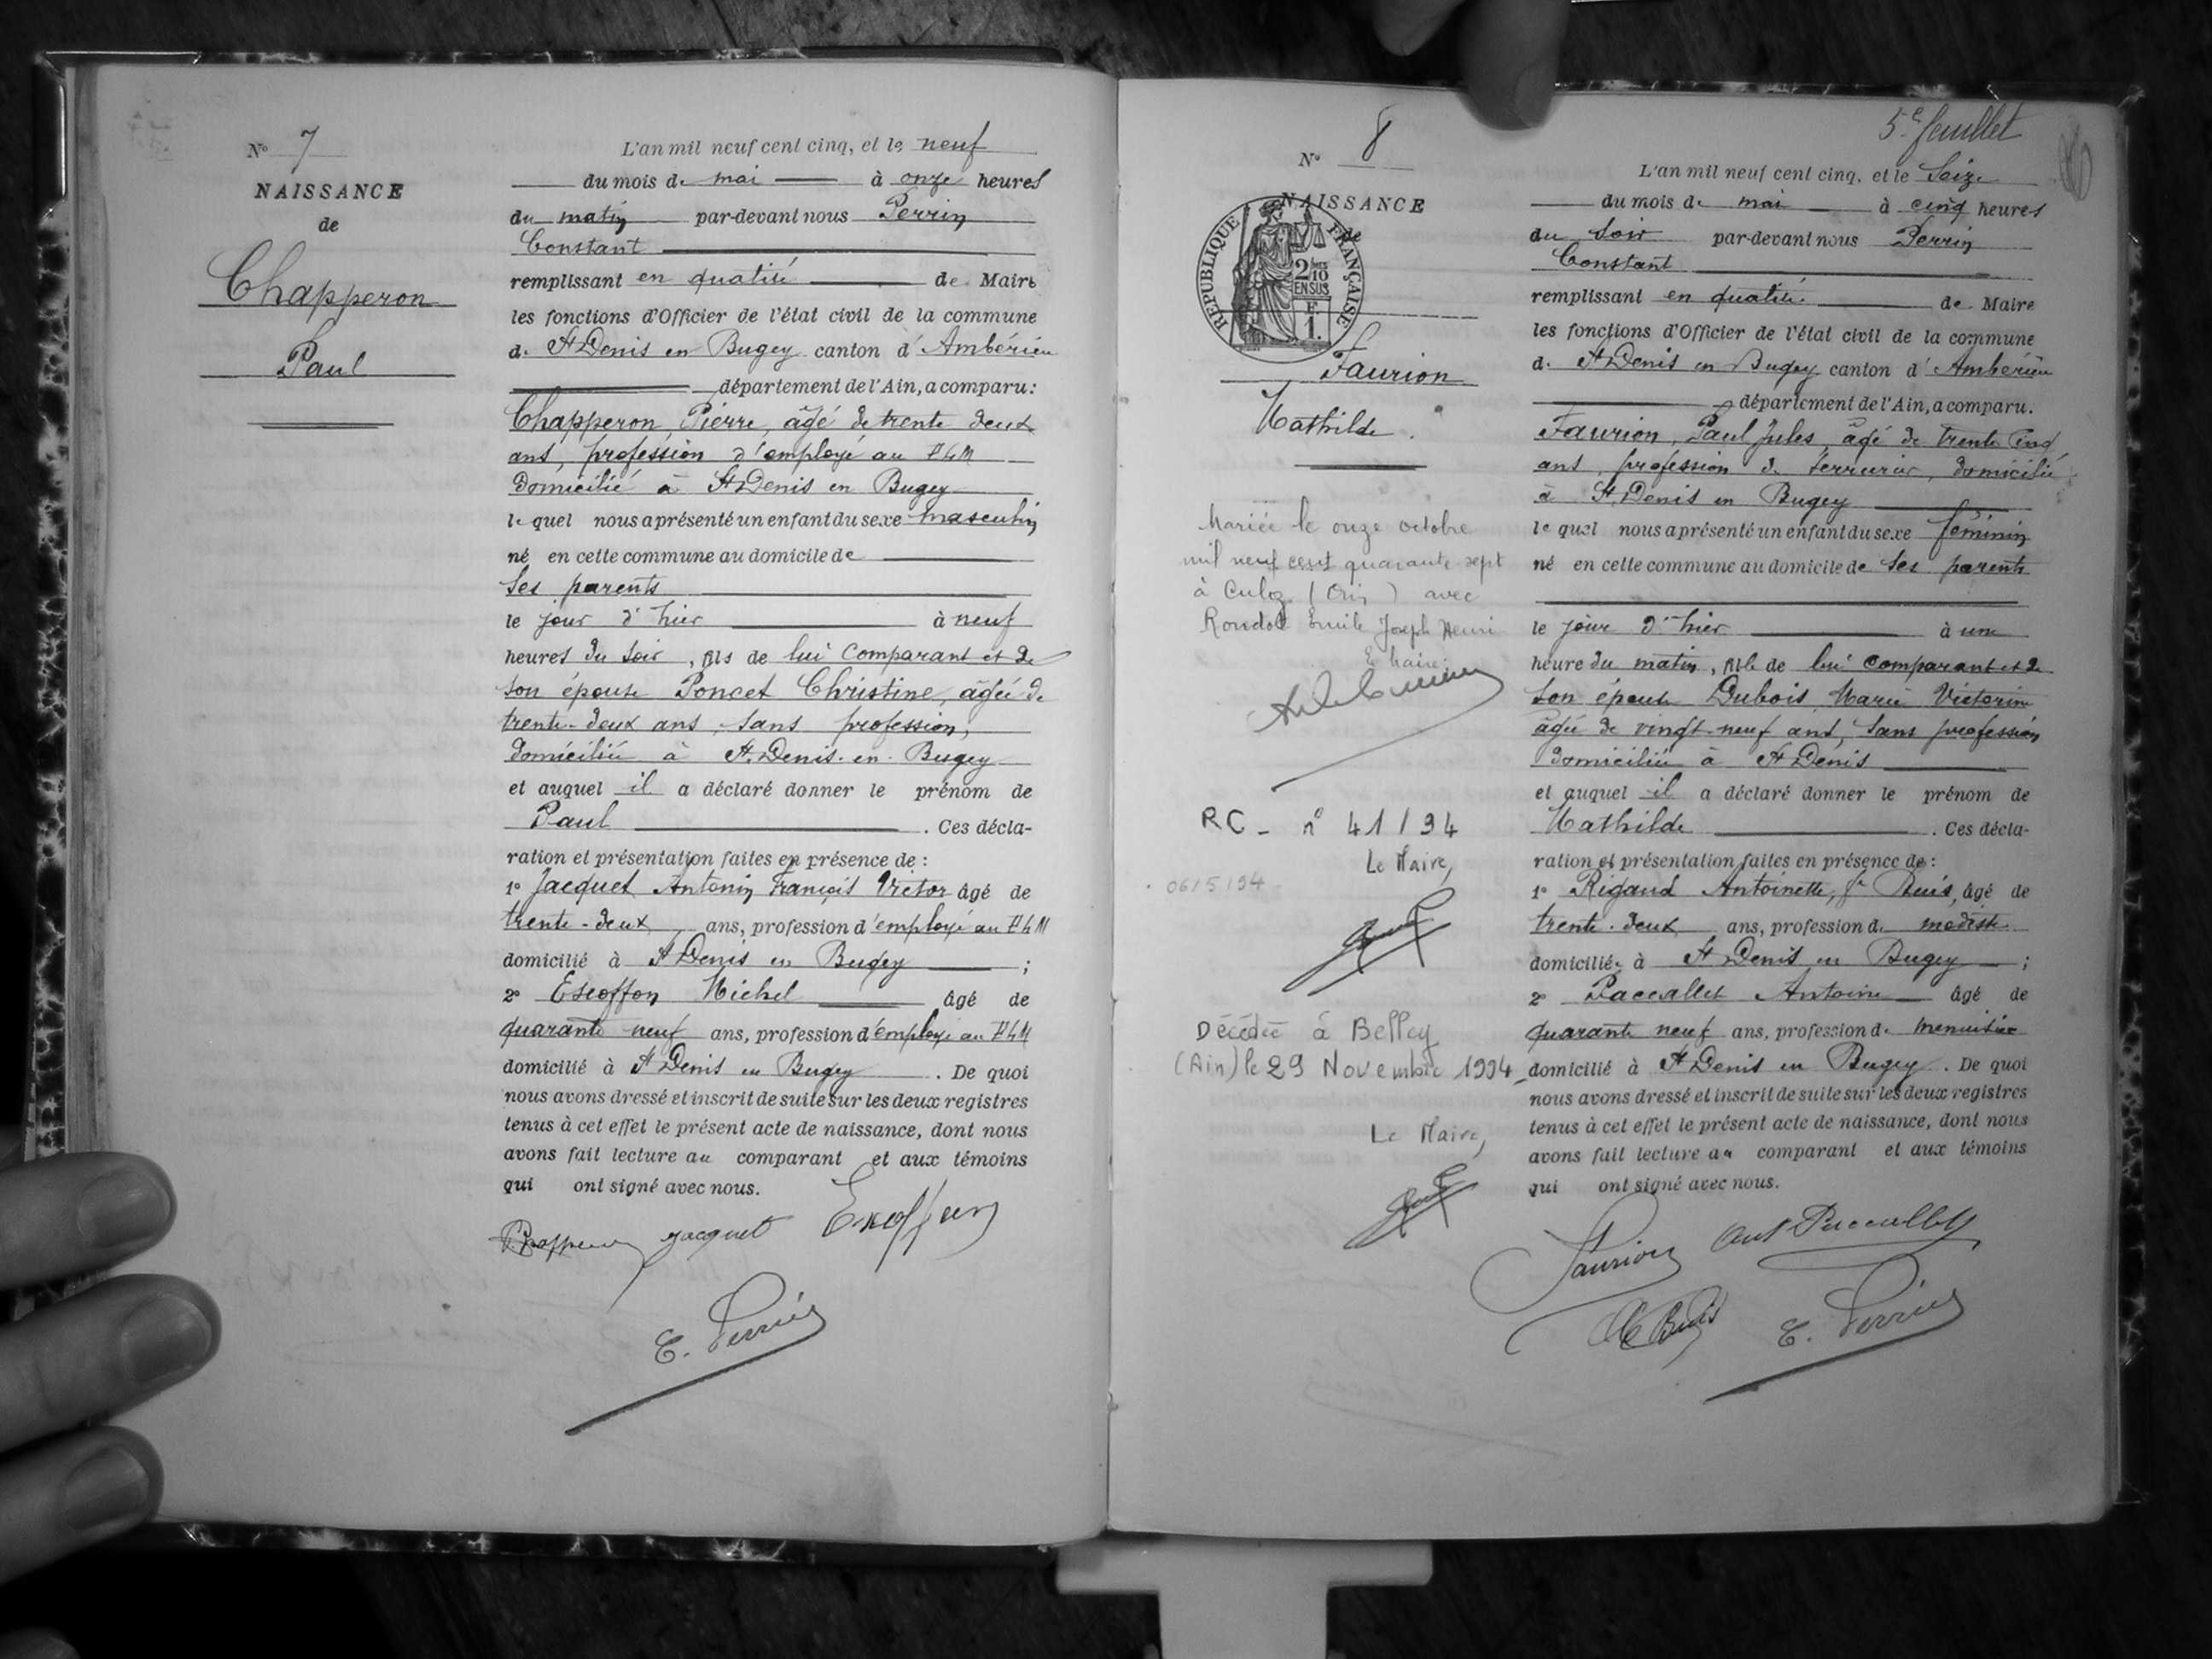 N° 7
NAISSANCE
de
Chapperon
Paul
L'an mil neuf cent cinq, et le neuf
du mois de mai à onze heures
du matin par-devant nous Perrin
Constant
remplissant en qualité de Maire
les fonctions d'Officier de l'état civil de la commune
de St Denis en Bugey canton d'Ambérieu
département de l'Ain, a comparu :
Chapperon Pierre, âgé de trente deux
ans, profession d'employé au PLM
domicilié à St Denis en Bugey
lequel nous a présenté un enfant du sexe masculin
né en cette commune au domicile de
ses parents
le jour d'hier à neuf
heures du soir, fils de lui comparant et de
son épouse Poncet Christine, âgée de
trente-deux ans, sans profession,
domiciliée à St Denis-en-Bugey
et auquel il a déclaré donner le prénom de
Paul. Ces décla-
ration et présentation faites en présence de :
1° Jacquet Antonin François Victor âgé de
trente-deux ans, profession d'employé au PLM
domicilié à St Denis en Bugey ;
2° Escoffon Michel âgé de
quarante neuf ans, profession d'employé au PLM
domicilié à St Denis en Bugey. De quoi
nous avons dressé et inscrit de suite sur les deux registres
tenus à cet effet le présent acte de naissance, dont nous
avons fait lecture au comparant et aux témoins
qui ont signé avec nous.
Jacquet Escoffon
C. Perrin
5e feuillet
N° 8
NAISSANCE
de
REPUBLIQUE FRANÇAISE
2/10
EN SUS
F.
1.
Faurion
Mathilde.
Mariée le onze octobre
mil neuf cent quarante-sept
à Culoz (Ain) avec
Emile Joseph Henri
Le Maire
RC - n° 41/94
Le Maire,
06/5/94
Décédée à Belley
(Ain) le 29 Novembre 1994
Le Maire,
L'an mil neuf cent cinq, et le Seize
du mois de mai à cinq heures
du soir par-devant nous Perrin
Constant
remplissant en qualité de Maire
les fonctions d'Officier de l'état civil de la commune
de St Denis en Bugey canton d'Ambérieu
département de l'Ain, a comparu.
Faurion, Paul Jules, âgé de trente cinq
ans, profession de serrurier, domicilié
à St Denis en Bugey
lequel nous a présenté un enfant du sexe féminin
né en cette commune au domicile de ses parents
le jour d'hier à une
heure du matin, fille de lui comparant et de
son épouse Dubois Marie Victorine
âgée de vingt-neuf ans, sans profession
domiciliée à St Denis
et auquel il a déclaré donner le prénom de
Mathilde. Ces décla-
ration et présentation faites en présence de :
1° Rigaud Antoinette, fe Buis, âgé de
trente-deux ans, profession de modiste
domiciliée à St Denis en Bugey ;
2° Paccallet Antoine âgé de
quarante neuf ans, profession de menuisier
domicilié à St Denis en Bugey. De quoi
nous avons dressé et inscrit de suite sur les deux registres
tenus à cet effet le présent acte de naissance, dont nous
avons fait lecture au comparant et aux témoins
qui ont signé avec nous.
Faurion Ant Paccallet
Buis C. Perrin